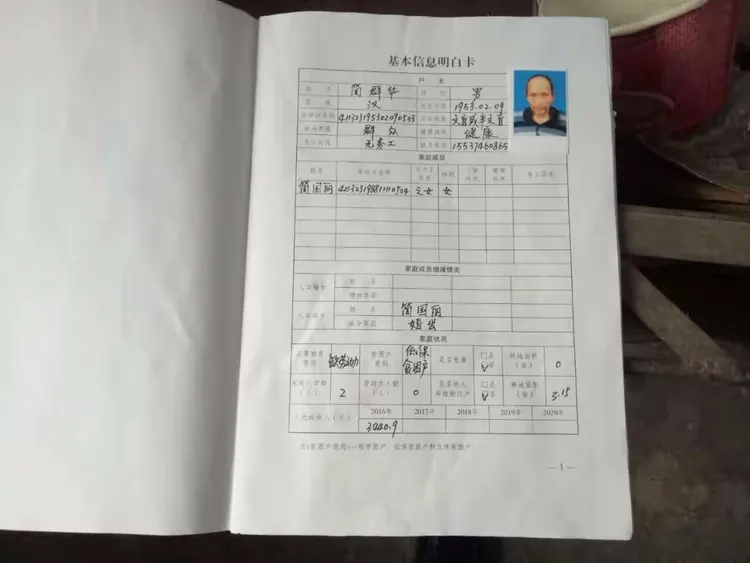 基本信息明白卡
户主
姓名 简群华 性别 男
民族 汉 出生年月 1953.02.09
身份证号码 411323195302090533 文化程度 文盲或半文盲
政治面貌 群众 健康状况 健康
务工状况 无务工 联系电话 15537460865
家庭成员
姓名 身份证号码 与户主关系 性别 健康状况 务工状况
简国丽 411323198811110524 之女 女
家庭成员增减情况
人口增加 姓名
增加原因
人口减少 姓名 简国丽
减少原因 婚出
家庭状况
主要致贫原因 缺劳动力 贫困户类别 低保贫困户 是否危房 □是 ☑否 林地面积(亩) 0
家庭人口数(人) 2 劳动力人数(人) 0 是否纳入易地搬迁户 □是 ☑否 耕地面积(亩) 3.15
人均纯收入(元) 2016年 2017年 2018年 2019年 2020年
3440.9
注:贫困户类别:一般贫困户、低保贫困户和五保贫困户。
—1—